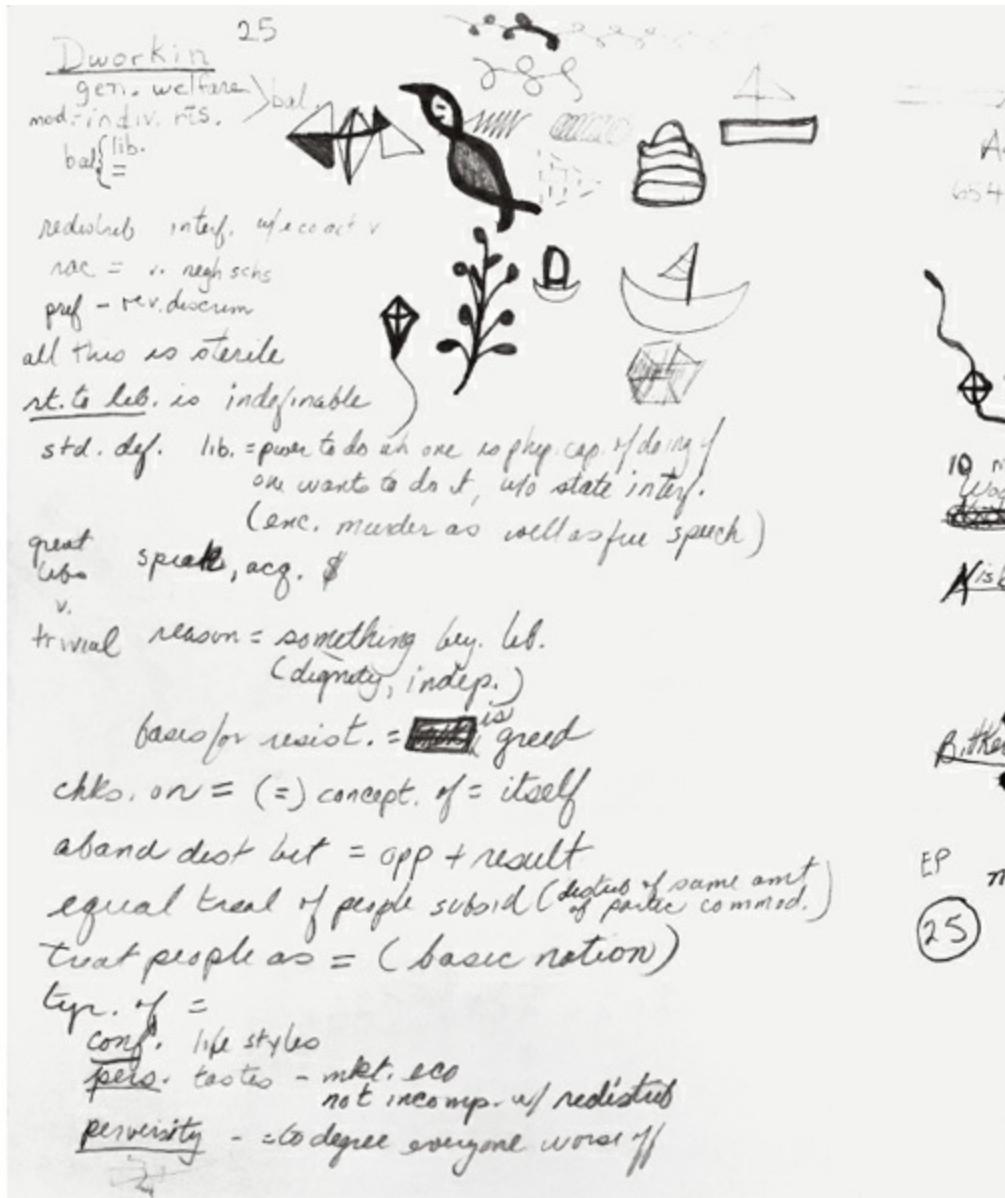 25
Dworkin
gen. welfare
mod. indiv. rts. > bal.
bal { lib.
=
redistrib interf. w/ eco act v
rac = v. negh schs
pref - rev. discrim
all this is sterile
rt. to lib. is indefinable
std. def. lib. = power to do wh one is phy. cap. of doing if
one wants to do it, w/o state interf.
(enc. murder as well as free speech)
great
libs
v.
trivial
speak, acq. $
reason = something bey. lib.
(dignity, indep.)
bases for resist. = is greed
chks. on = (=) concept. of = itself
aband dist bet = opp + result
equal treat of people subsid (distrib of same amt
of partic commod.)
treat people as = (basic notion)
tyr. of =
conf. life styles
pers. tastes - mkt. eco
not incomp. w/ redistrib
perversity - = to degree everyone worse off
A
654
10
EP
25